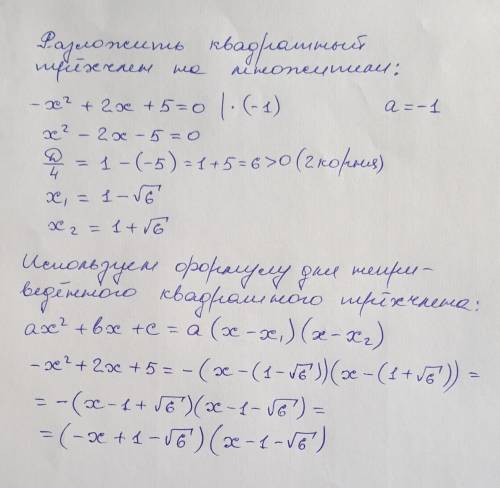 Разложить квадратный
трёхчлен на множители:
-x² + 2x + 5 = 0 | · (-1) a = -1
x² - 2x - 5 = 0
D/4 = 1 - (-5) = 1 + 5 = 6 > 0 (2 корня)
x₁ = 1 - √6
x₂ = 1 + √6
Используем формулу для непри-
ведённого квадратного трёхчлена:
ax² + bx + c = a (x - x₁) (x - x₂)
-x² + 2x + 5 = - (x - (1 - √6)) (x - (1 + √6)) =
= - (x - 1 + √6) (x - 1 - √6) =
= (-x + 1 - √6) (x - 1 - √6)